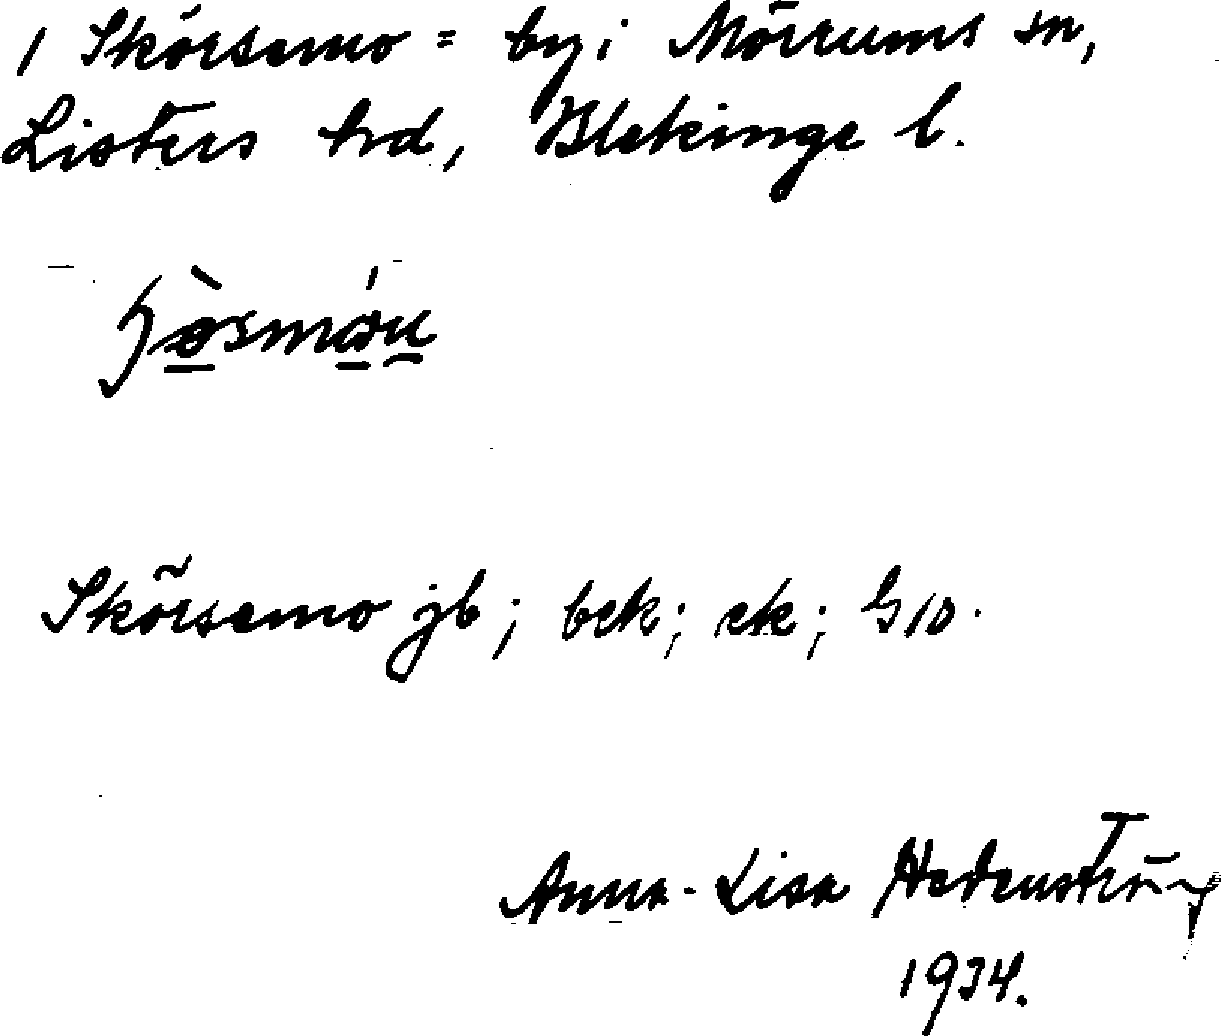 1 Skörsemo = by i Mörrums sn,
Listers hrd, Blekinge l.
Skörsemo jb; bek; ek; G 10.
Anna-Lisa
1934.